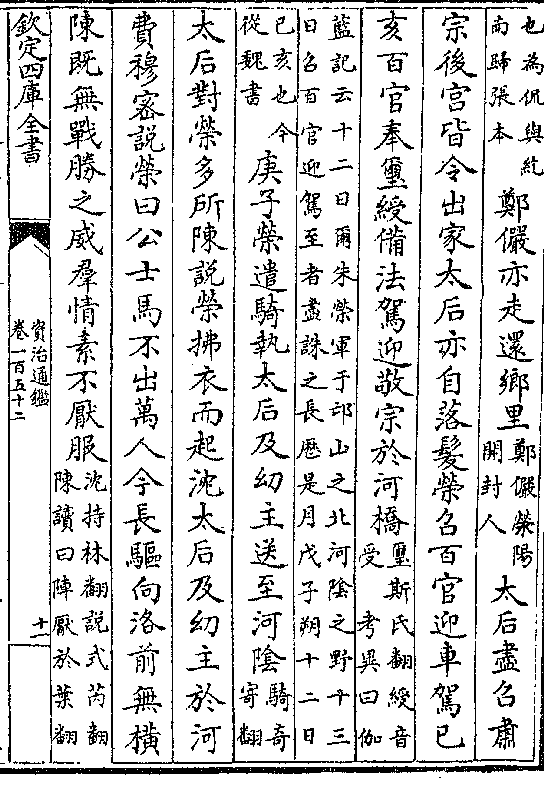 也為侃與紇
南歸張本
鄭儼亦走還鄉里
鄭儼滎陽
開封人
太后盡召肅
宗後宮皆令出家太后亦自落髮榮召百官迎車駕已
亥百官奉璽綬備法駕迎敬宗於河橋
璽斯氏翻綬音
受 考異曰伽
藍記云十二日爾朱榮軍于邙山之北河隂之野十三
日召百官迎駕至者盡誅之長厯是月戊子朔十二日
已亥也今
從魏書
庚子榮遣騎執太后及幼主送至河隂
騎奇
寄翻
太后對榮多所陳說榮拂衣而起沈太后及幼主於河
費穆宻說榮曰公士馬不出萬人今長驅向洛前無橫
陳既無戰勝之威羣情素不厭服
沈持林翻說式芮翻
陳讀曰陣厭於葉翻
欽定四庫全書
資治通鑑
卷一百五十二
十一